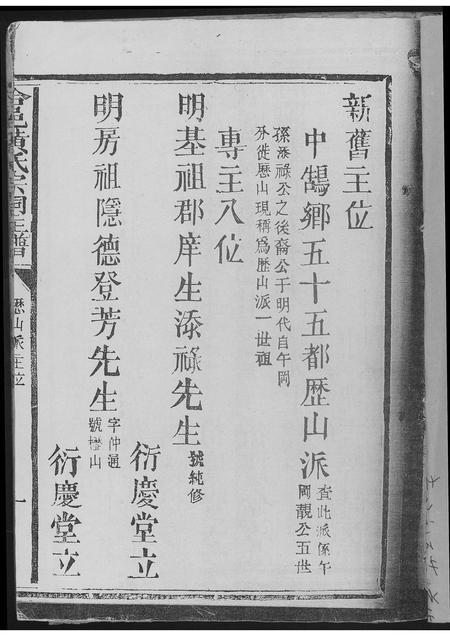 新舊主位
中鵠鄉五十五都歷山派
查此派係午
岡靚公五世
孫添祿公之後裔公于明代自午岡
外徙歷山現稱爲歷山派一世祖
專主八位
明基祖郡庠生添祿先生
號純修
衍慶堂立
明房祖隱德登芳先生
字仲通
號橙山
衍慶堂立
邑黃氏宗祠主譜
歷山派主位
一